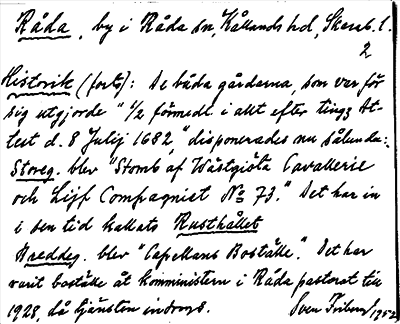 Råda, by i Råda sn, Kållands hd, Skarab. l.
2
Historik (forts): De båda gårdarna, som var för
sig utgjorde "1/2 förmedl. i allt efter tings At-
test d. 8 Julij 1682," disponerades nu sålunda:
Storeg. blev "Stomb af Wästgiöta Cavallerie
och Lijf Compagniet No 73." Det har in
i sen tid kallats Rusthållet
Breddeg. blev "Capellans Boställe". Det har
varit boställe åt komministern i Råda pastorat till
1928, då tjänsten indrogs. Sven 1952